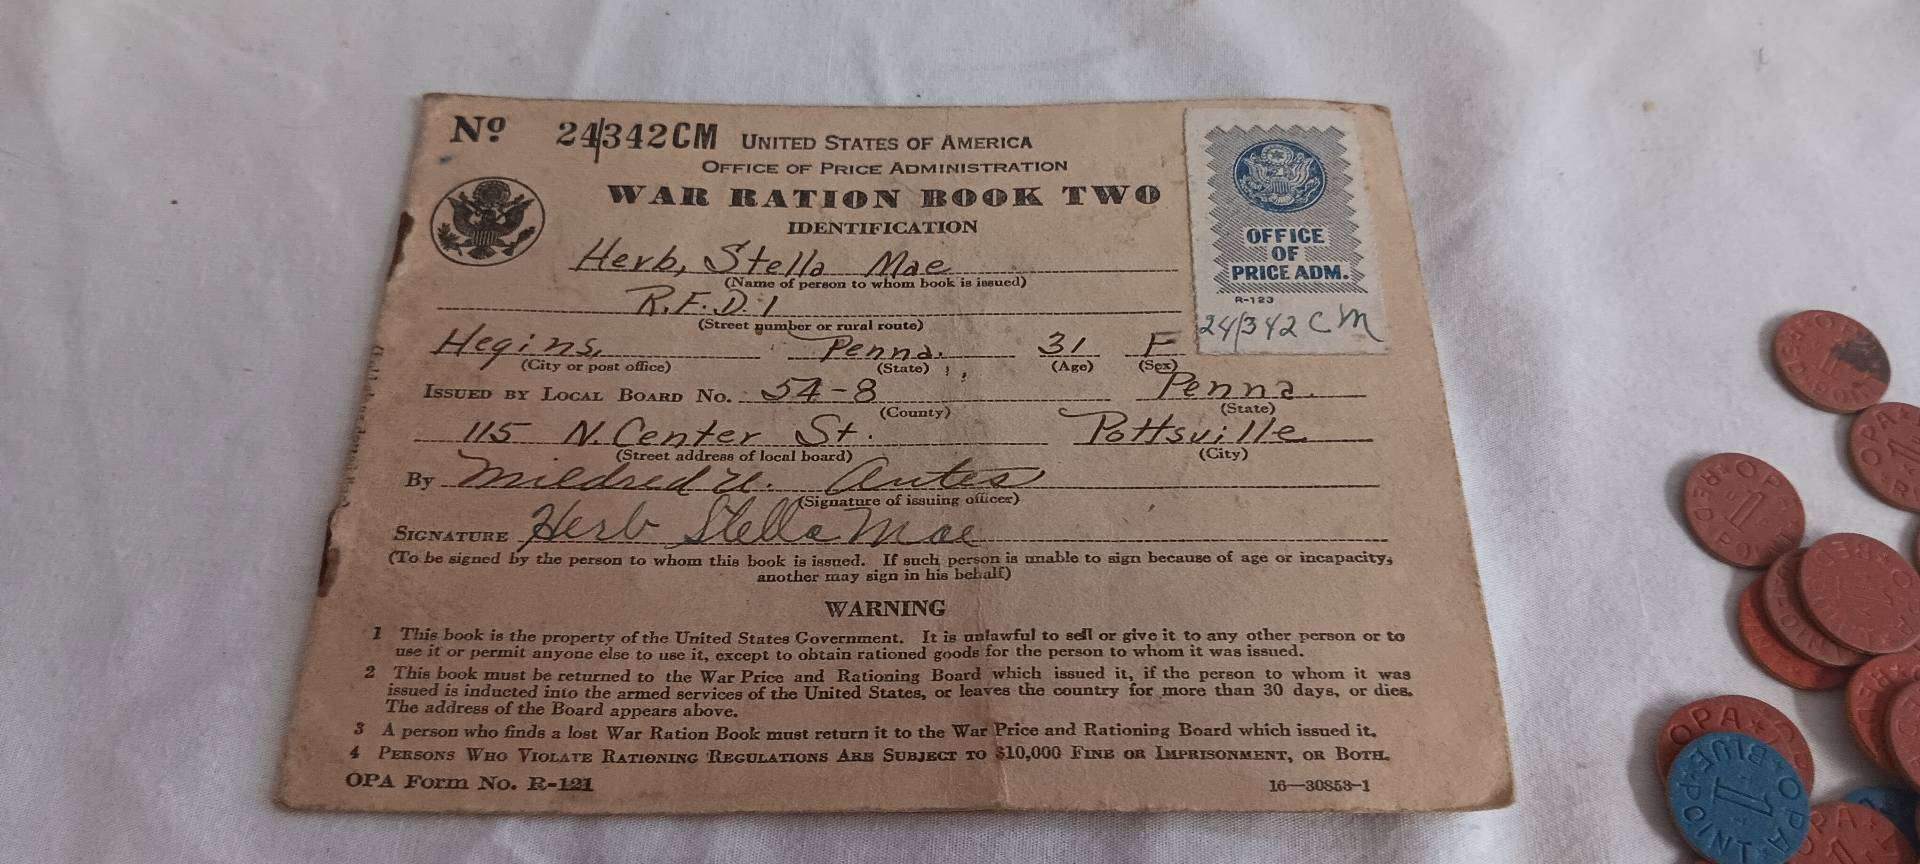 Nº 24/342CM UNITED STATES OF AMERICA
OFFICE OF PRICE ADMINISTRATION
WAR RATION BOOK TWO
IDENTIFICATION
OFFICE
OF
PRICE ADM.
R-123
24/342 CM
Herb, Stella Mae
(Name of person to whom book is issued)
R.F.D. 1
(Street number or rural route)
Hegins, Penna. 31 F
(City or post office) (State) (Age) (Sex)
ISSUED BY LOCAL BOARD NO. 54-8 Penna.
(County) (State)
115 N. Center St. Pottsville
(Street address of local board) (City)
By Mildred U. Antes
(Signature of issuing officer)
SIGNATURE Herb Stella Mae
(To be signed by the person to whom this book is issued. If such person is unable to sign because of age or incapacity,
another may sign in his behalf)
WARNING
1 This book is the property of the United States Government. It is unlawful to sell or give it to any other person or to
use it or permit anyone else to use it, except to obtain rationed goods for the person to whom it was issued.
2 This book must be returned to the War Price and Rationing Board which issued it, if the person to whom it was
issued is inducted into the armed services of the United States, or leaves the country for more than 30 days, or dies.
The address of the Board appears above.
3 A person who finds a lost War Ration Book must return it to the War Price and Rationing Board which issued it.
4 PERSONS WHO VIOLATE RATIONING REGULATIONS ARE SUBJECT TO $10,000 FINE OR IMPRISONMENT, OR BOTH.
OPA Form No. R-121 16—30853-1
OPA RED POINT 1
OPA BLUE POINT 1